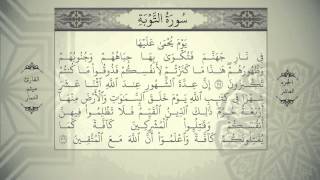 سُورَةُ التَّوْبَةِ
يَوْمَ يُحْمَىٰ عَلَيْهَا
فِي نَارِ جَهَنَّمَ فَتُكْوَىٰ بِهَا جِبَاهُهُمْ وَجُنُوبُهُمْ
وَظُهُورُهُمْ هَٰذَا مَا كَنَزْتُمْ لِأَنفُسِكُمْ فَذُوقُوا مَا كُنتُمْ
تَكْنِزُونَ ۝ إِنَّ عِدَّةَ الشُّهُورِ عِندَ اللَّهِ اثْنَا عَشَرَ
شَهْرًا فِي كِتَابِ اللَّهِ يَوْمَ خَلَقَ السَّمَاوَاتِ وَالْأَرْضَ مِنْهَا
أَرْبَعَةٌ حُرُمٌ ذَٰلِكَ الدِّينُ الْقَيِّمُ فَلَا تَظْلِمُوا فِيهِنَّ
أَنفُسَكُمْ وَقَاتِلُوا الْمُشْرِكِينَ كَافَّةً كَمَا
يُقَاتِلُونَكُمْ كَافَّةً وَاعْلَمُوا أَنَّ اللَّهَ مَعَ الْمُتَّقِينَ ۝
الجزء
العاشر
القارئ
ميثم
التمار